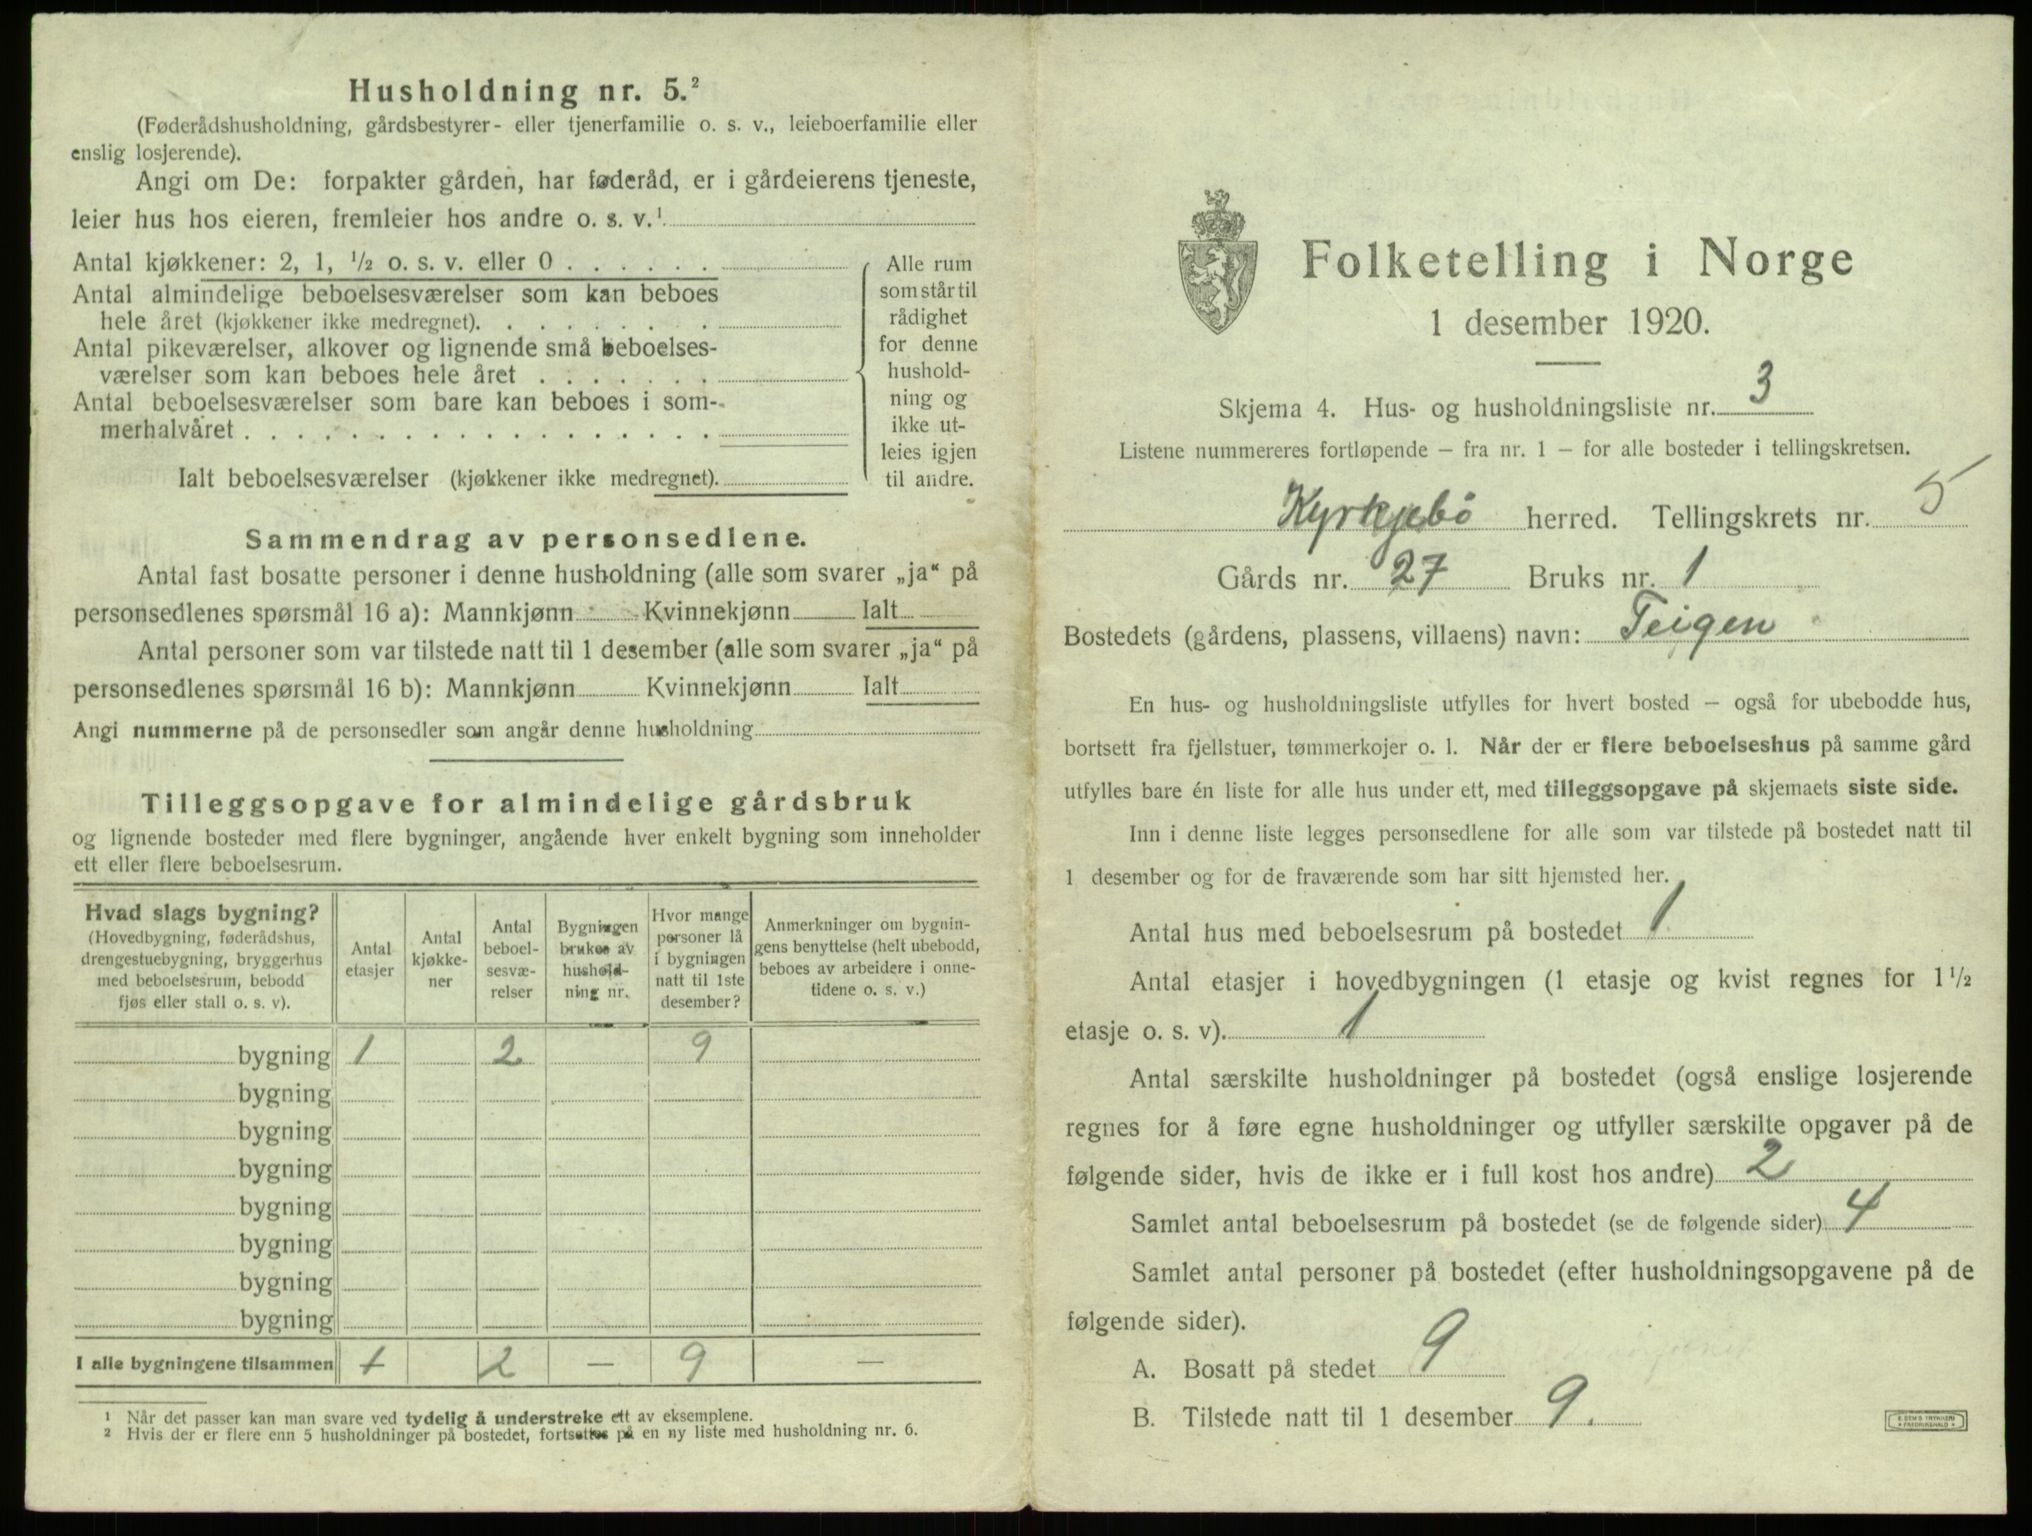 Husholdning nr. 5.²
(Føderådshusholdning, gårdsbestyrer- eller tjenerfamilie o. s. v., leieboerfamilie eller
enslig losjerende).
Angi om De: forpakter gården, har føderåd, er i gårdeierens tjeneste,
leier hus hos eieren, fremleier hos andre o. s. v.¹
Antal kjøkkener: 2, 1, ½ o. s. v. eller 0
Antal almindelige beboelsesværelser som kan beboes
hele året (kjøkkener ikke medregnet).
Antal pikeværelser, alkover og lignende små beboelses-
værelser som kan beboes hele året
Antal beboelsesværelser som bare kan beboes i som-
merhalvåret
Ialt beboelsesværelser (kjøkkener ikke medregnet).
Alle rum
som står til
rådighet
for denne
hushold-
ning og
ikke ut-
leies igjen
til andre.
Sammendrag av personsedlene.
Antal fast bosatte personer i denne husholdning (alle som svarer „ja“ på
personsedlenes spørsmål 16 a): Mannkjønn Kvinnekjønn Ialt
Antal personer som var tilstede natt til 1 desember (alle som svarer „ja“ på
personsedlenes spørsmål 16 b): Mannkjønn Kvinnekjønn Ialt
Angi nummerne på de personsedler som angår denne husholdning
Tilleggsopgave for almindelige gårdsbruk
og lignende bosteder med flere bygninger, angående hver enkelt bygning som inneholder
ett eller flere beboelsesrum.
Hvad slags bygning?
(Hovedbygning, føderådshus,
drengestuebygning, bryggerhus
med beboelsesrum, bebodd
fjøs eller stall o. s. v).
Antal
etasjer
Antal
kjøkke-
ner
Antal
beboel-
sesvæ-
relser
Bygningen
brukes av
hushold-
ning nr.
Hvor mange
personer lå
i bygningen
natt til 1ste
desember?
Anmerkninger om bygnin-
gens benyttelse (helt ubebodd,
beboes av arbeidere i onne-
tidene o. s. v.)
bygning 1 2 9
bygning
bygning
bygning
bygning
bygning
bygning
bygning
I alle bygningene tilsammen 1 2 — 9 —
¹ Når det passer kan man svare ved tydelig å understreke ett av eksemplene.
² Hvis der er flere enn 5 husholdninger på bostedet, fortsettes på en ny liste med husholdning nr. 6.
Folketelling i Norge
1 desember 1920.
Skjema 4. Hus- og husholdningsliste nr. 3
Listene nummereres fortløpende — fra nr. 1 — for alle bosteder i tellingskretsen.
Kyrkjebö herred. Tellingskrets nr. 5
Gårds nr. 27 Bruks nr. 1
Bostedets (gårdens, plassens, villaens) navn: Teigen
En hus- og husholdningsliste utfylles for hvert bosted — også for ubebodde hus,
bortsett fra fjellstuer, tømmerkojer o. l. Når der er flere beboelseshus på samme gård
utfylles bare én liste for alle hus under ett, med tilleggsopgave på skjemaets siste side.
Inn i denne liste legges personsedlene for alle som var tilstede på bostedet natt til
1 desember og for de fraværende som har sitt hjemsted her.
Antal hus med beboelsesrum på bostedet 1
Antal etasjer i hovedbygningen (1 etasje og kvist regnes for 1½
etasje o. s. v). 1
Antal særskilte husholdninger på bostedet (også enslige losjerende
regnes for å føre egne husholdninger og utfyller særskilte opgaver på de
følgende sider, hvis de ikke er i full kost hos andre) 2
Samlet antal beboelsesrum på bostedet (se de følgende sider) 4
Samlet antal personer på bostedet (efter husholdningsopgavene på de
følgende sider).
A. Bosatt på stedet 9
B. Tilstede natt til 1 desember 9.